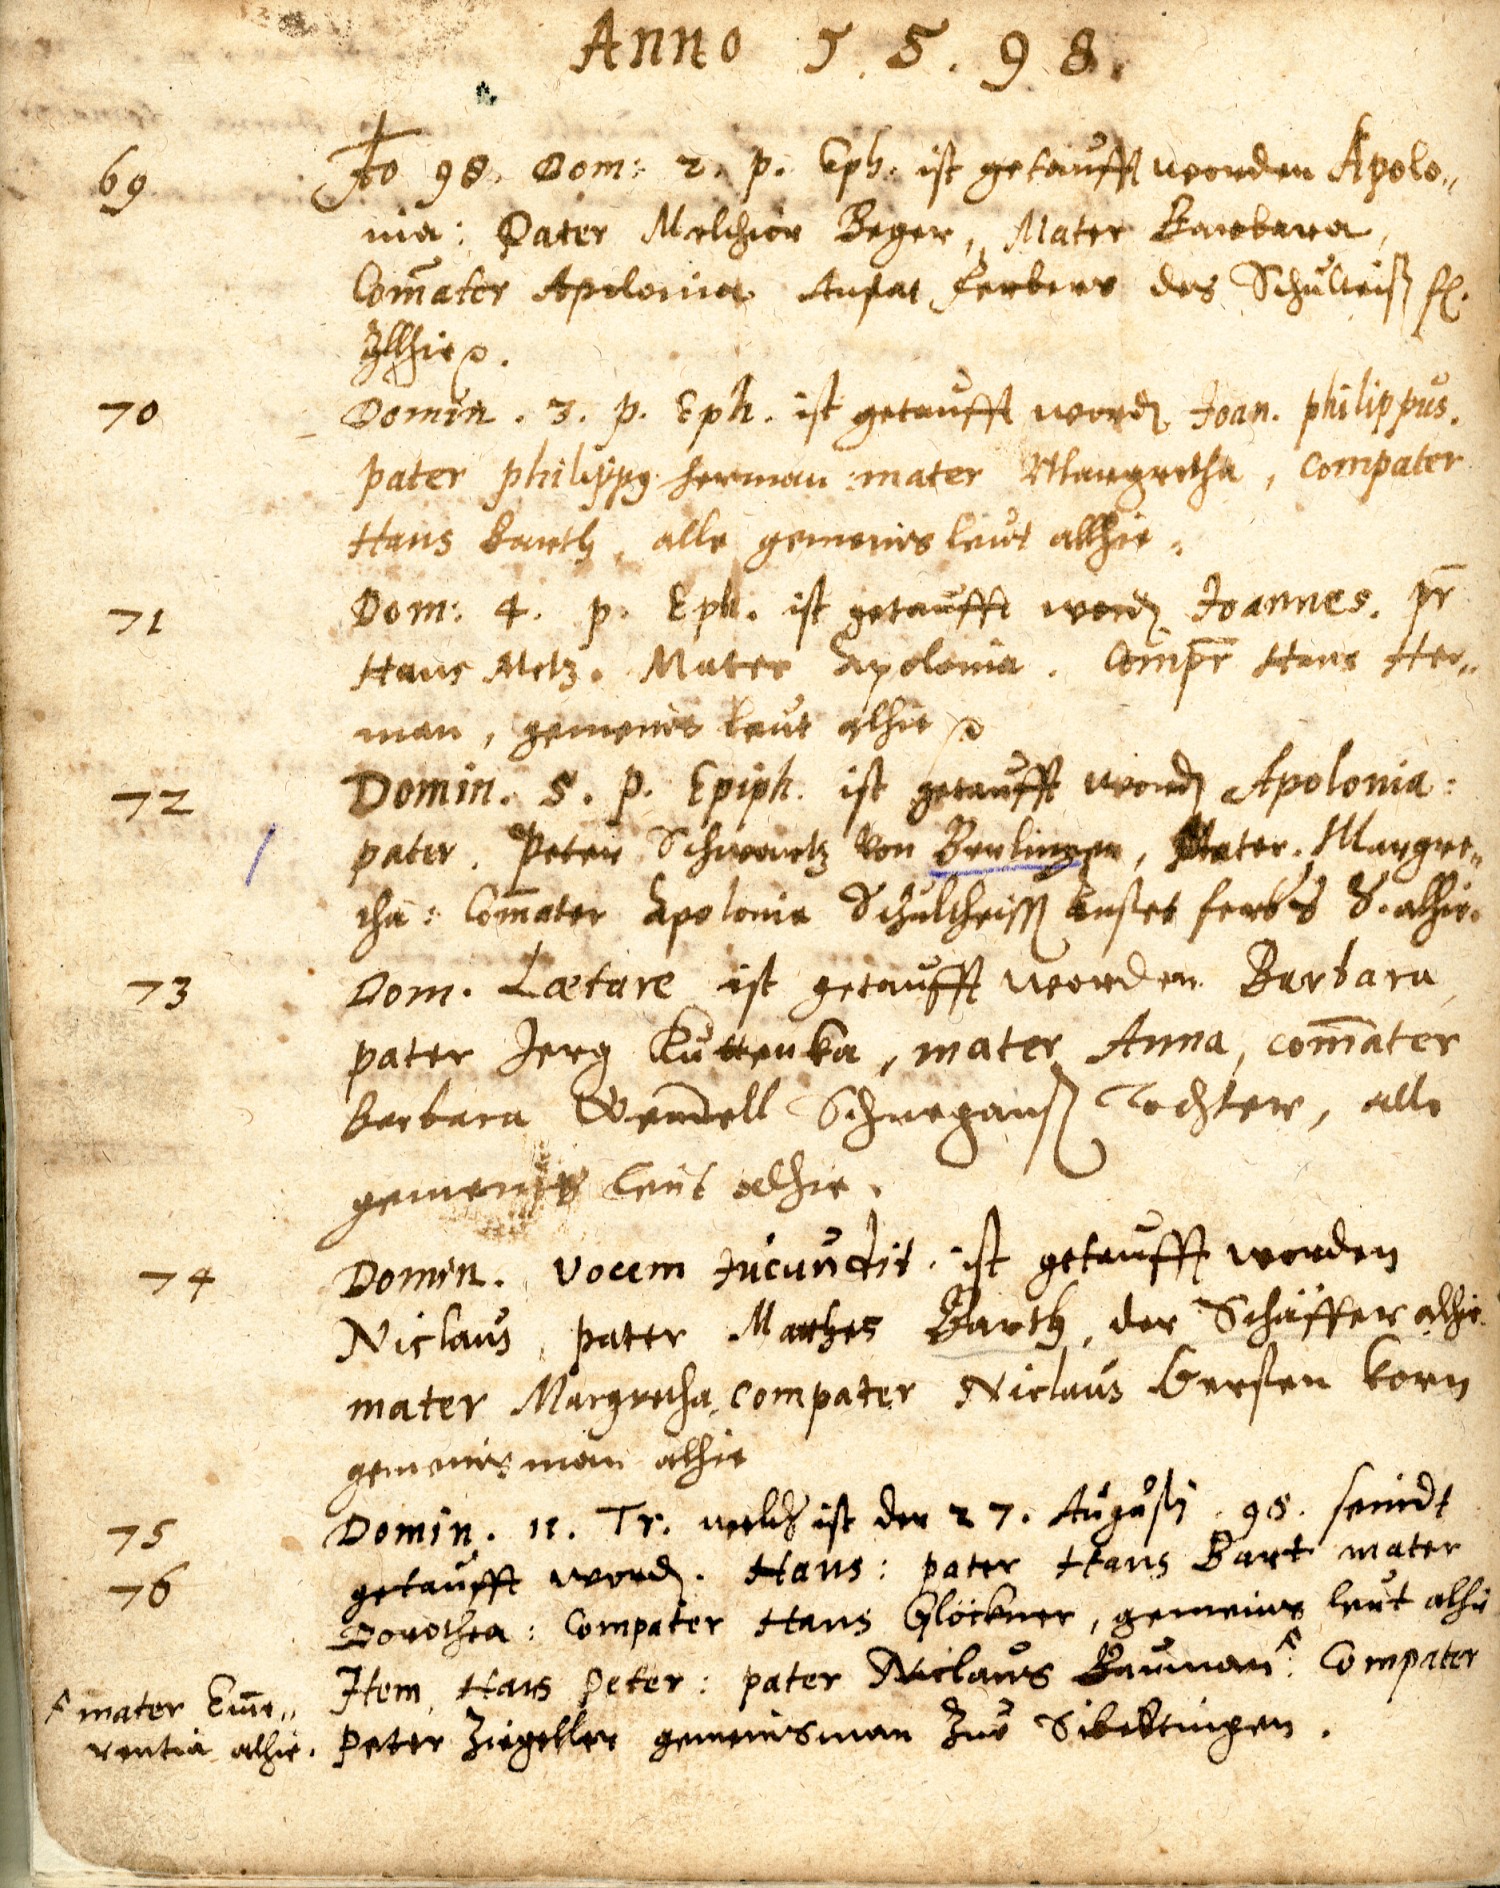 Anno 1.5.98.
69 Ao 98. Dom: 2. p. Eph. ist getaufft worden Apolo„
nia: Pater Melchior Beger, Mater Barbara,
Com̄ater Apolonia Anstat Ferbers des Schulteiß
Allhie.
70 Domin. 3. p. Eph. ist getaufft word. Joan. philippus.
pater philippg herman mater Margretha, compater
Hans Barth, alle gemeins leut allhie.
71 Dom: 4. p. Eph. ist getaufft word. Joannes. pr̄
Hans Metz. Mater Apolonia. Compr̄ Hans Her„
man, gemeins leut alhie
72 Domin. 5. p. Epiph. ist getaufft word. Apolonia:
pater. Peter Schwartz von Berlingen, Mater. Margre„
tha: Com̄ater Apolonia Schultheiss alhie.
73 Dom. Lætare ist getaufft worden Barbara
pater Jerg Kuttenka, mater Anna, com̄ater
Barbara Wendell Schneganß Tochter, alle
gemeins leut alhie.
74 Domin. Vocem Jucundit. ist getaufft worden
Niclaus, pater Mathes Barth, der Schäffer alhie.
mater Margretha, compater Niclaus Gersten korn
gemeinsman alhie
75 Domin. 11. Tr. welch ist der 27. Augusti. 98. seindt
76 getaufft word. Hans: pater Hans Bart mater
Dorothea: Compater Hans Glöckner, gemeins leut alhie
Item Hans Peter: pater Niclaus Bauman: Compater
mater Em̄e„
rentia alhie.
Peter Ziegeller gemeinsman Zue Sibeltingen.